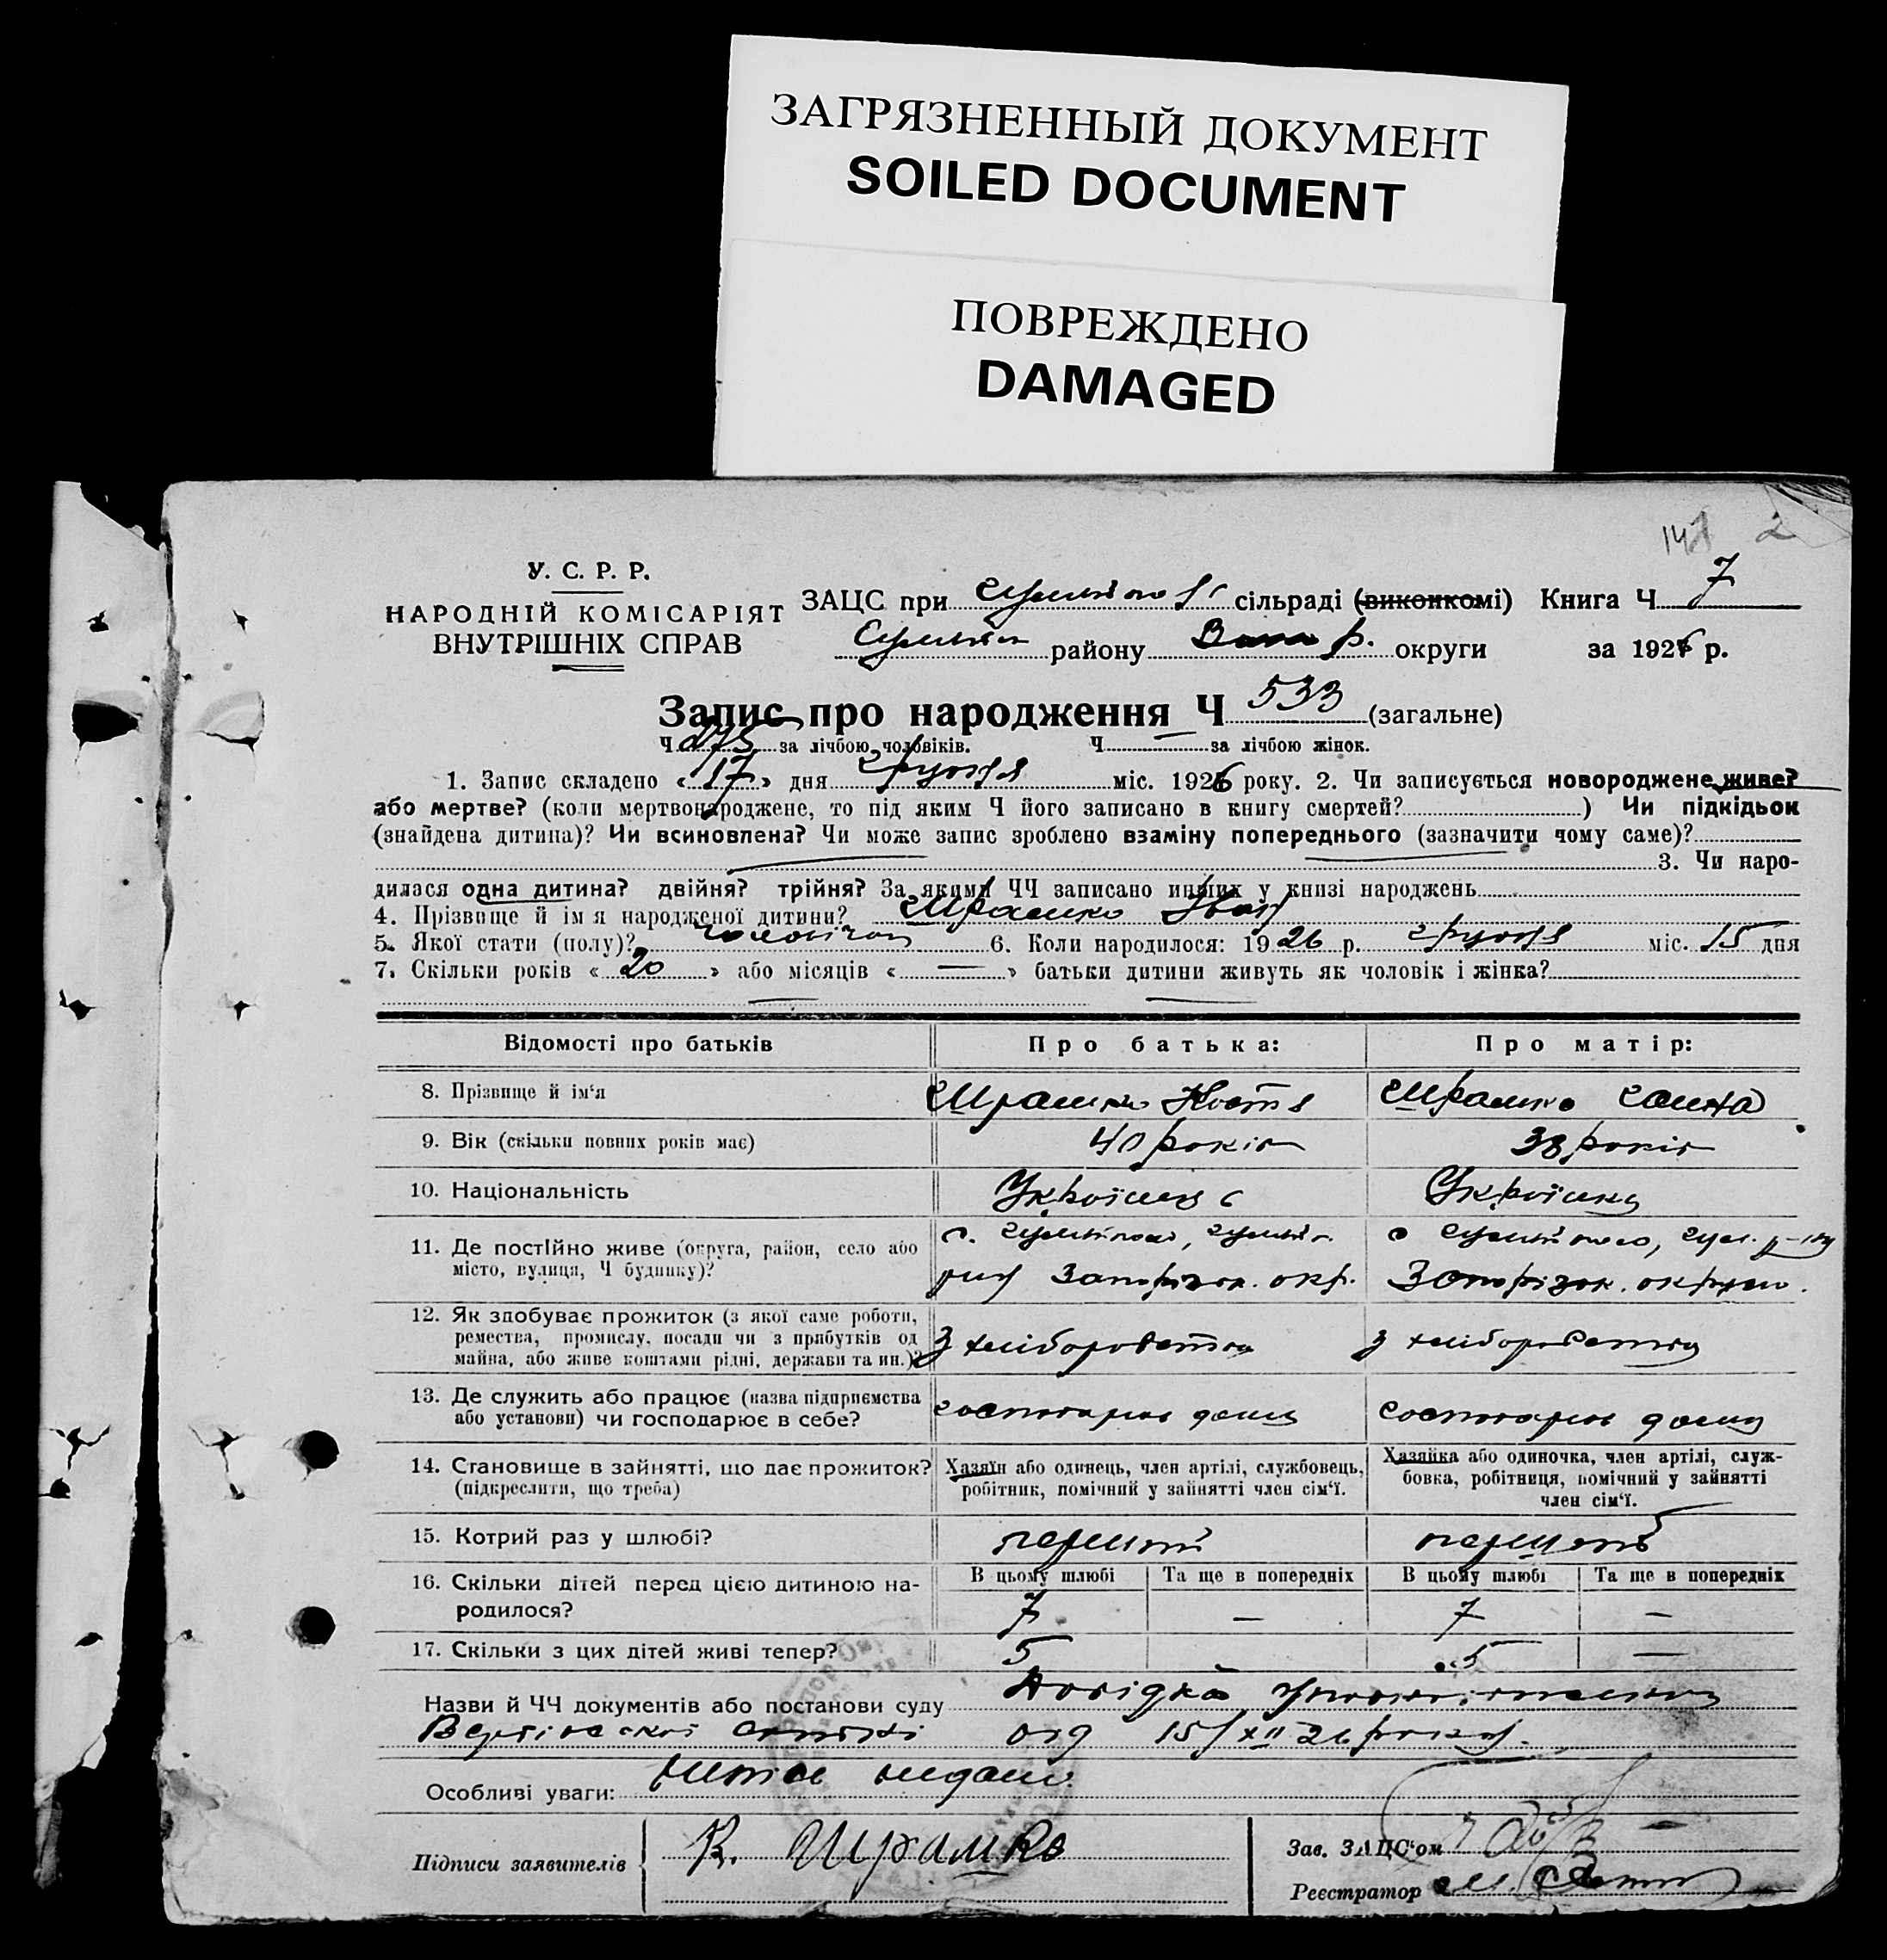 ЗАГРЯЗНЕННЫЙ ДОКУМЕНТ
SOILED DOCUMENT
ПОВРЕЖДЕНО
DAMAGED
147 2
У. С. Р. Р.
НАРОДНІЙ КОМІСАРІЯТ
ВНУТРІШНІХ СПРАВ
ЗАЦС при сільраді (виконкомі) Книга Ч 7
району округи за 1926 р.
Запис про народження Ч 533 (загальне)
Ч 275 за лічбою чоловіків. Ч за лічбою жінок.
1. Запис складено «17» дня грудня міс. 1926 року. 2. Чи записується новороджене живе?
або мертве? (коли мертвонароджене, то під яким Ч його записано в книгу смертей? ) Чи підкідьок
(знайдена дитина)? Чи всиновлена? Чи може запис зроблено взаміну попереднього (зазначити чому саме)?
3. Чи наро-
дилася одна дитина? двійня? трійня? За якими ЧЧ записано инших у книзі народжень
4. Прізвище й ім я народженої дитини? Шрамко Іван
5. Якої стати (полу)? 6. Коли народилося: 1926 р. грудня міс. 15 дня
7. Скільки років «20» або місяців «—» батьки дитини живуть як чоловік і жінка?
Відомості про батьків Про батька: Про матір:
8. Прізвище й ім'я Шрамко Костя Шрамко Ганна
9. Вік (скільки повних років має) 40 років 38 років
10. Національність Українець Українка
11. Де постійно живе (округа, район, село або
місто, вулиця, Ч будинку)?
с. Запорізьк. окр. с Запорізьк. округи.
12. Як здобуває прожиток (з якої саме роботи,
ремества, промислу, посади чи з прибутків од
майна, або живе коштами рідні, держави та ин.)?
з хліборобства з хліборобства
13. Де служить або працює (назва підприємства
або установи) чи господарює в себе?
господарює дома господарює дома
14. Становище в зайнятті, що дає прожиток?
(підкреслити, що треба)
Хазяїн або одинець, член артілі, службовець,
робітник, помічний у зайнятті член сім'ї.
Хазяйка або одиночка, член артілі, служ-
бовка, робітниця, помічний у зайнятті
член сім'ї.
15. Котрий раз у шлюбі? перший
16. Скільки дітей перед цією дитиною на-
родилося?
В цьому шлюбі Та ще в попередніх В цьому шлюбі Та ще в попередніх
7 — 7 —
17. Скільки з цих дітей живі тепер? 5 5 —
Назви й ЧЧ документів або постанови суду Довідка
сотні од 15/XII 26 року.
Особливі уваги:
Підписи заявителів К. Шрамко
Зав. ЗАЦС'ом
Реєстратор